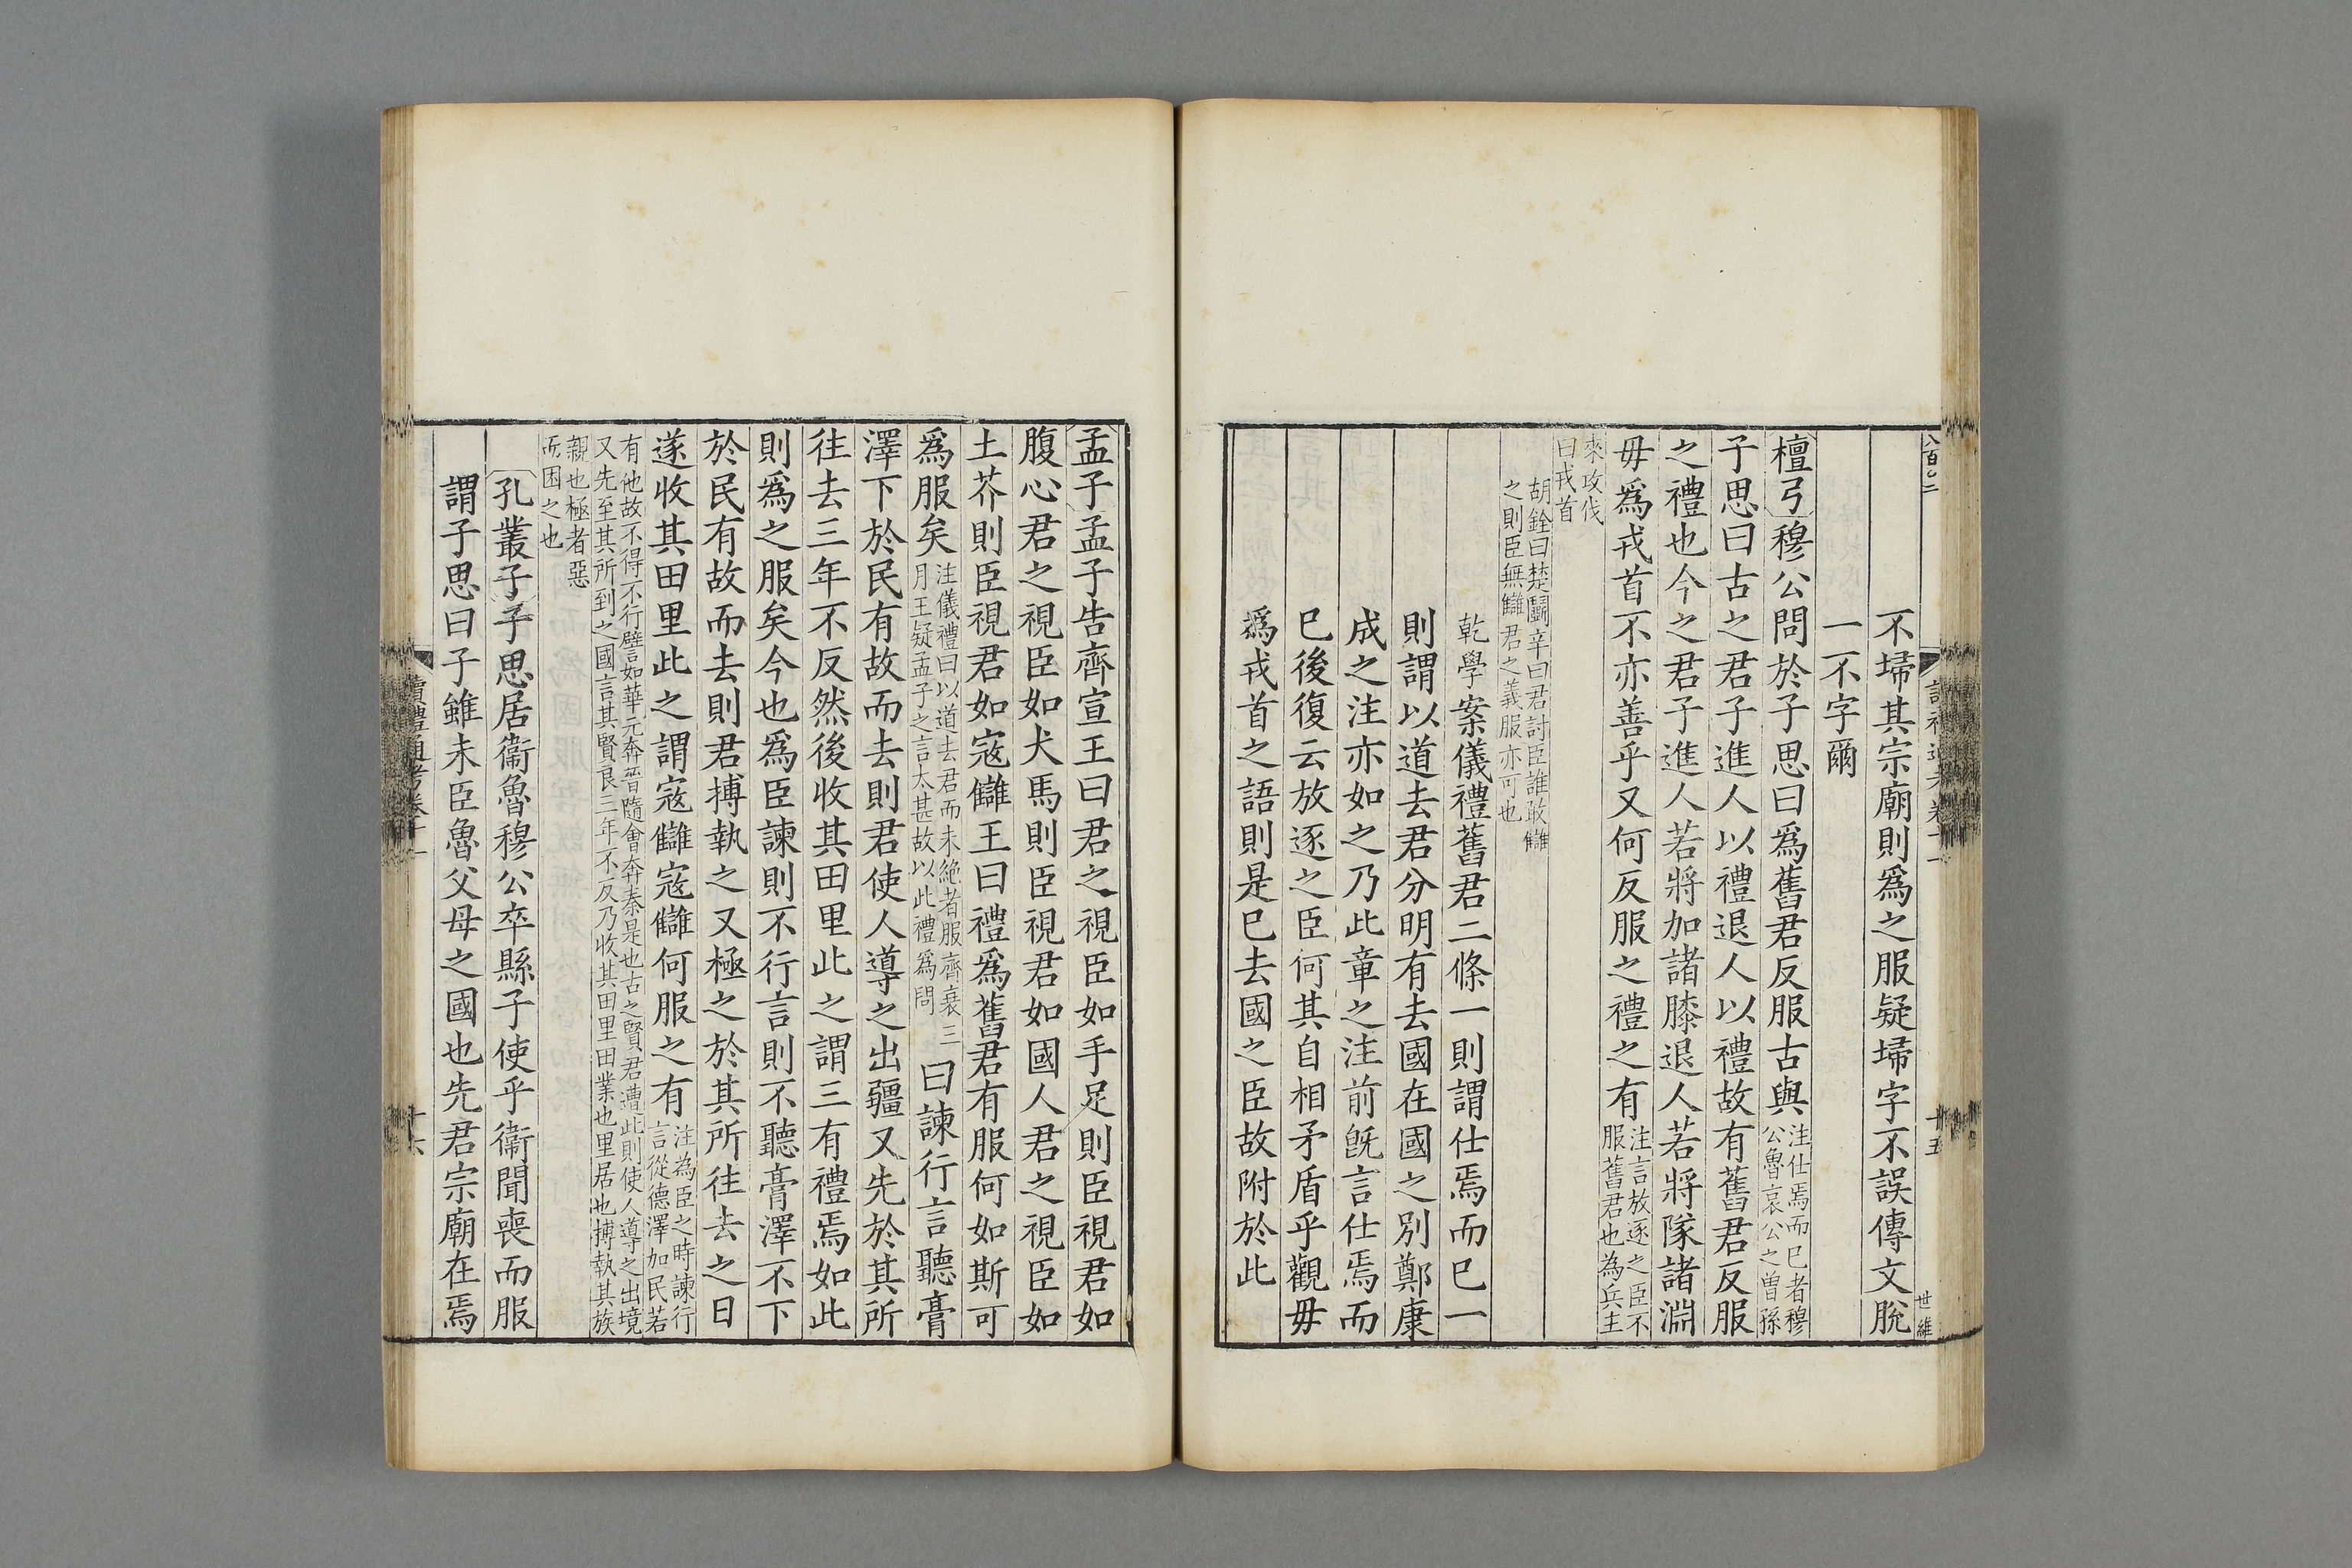 不埽其宗廟則爲之服疑埽字不誤傳文脫
一不字爾
檀弓穆公問於子思曰爲舊君反服古與注仕焉而已者穆公魯哀公之曾孫
子思曰古之君子進人以禮退人以禮故有舊君反服
之禮也今之君子進人若將加諸膝退人若將隊諸淵
毋爲戎首不亦善乎又何反服之禮之有注言放逐之臣不服舊君也為兵主
來攻伐曰戎首
胡銓曰楚鬭辛曰君討臣誰敢讎之則臣無讎君之義服亦可也
乾學案儀禮舊君二條一則謂仕焉而已一
則謂以道去君分明有去國在國之別鄭康
成之注亦如之乃此章之注前旣言仕焉而
已後復云放逐之臣何其自相矛盾乎觀毋
爲戎首之語則是已去國之臣故附於此
十五
世維
孟子孟子告齊宣王曰君之視臣如手足則臣視君如
腹心君之視臣如犬馬則臣視君如國人君之視臣如
土芥則臣視君如寇讎王曰禮爲舊君有服何如斯可
爲服矣注儀禮曰以道去君而未絶者服齊衰三月王疑孟子之言太甚故以此禮爲問曰諫行言聽膏
澤下於民有故而去則君使人導之出疆又先於其所
往去三年不反然後收其田里此之謂三有禮焉如此
則爲之服矣今也爲臣諫則不行言則不聽膏澤不下
於民有故而去則君搏執之又極之於其所往去之日
遂收其田里此之謂寇讎寇讎何服之有注為臣之時諫行言從德澤加民若
有他故不得不行譬如華元奔晉隨會奔秦是也古之賢君遭此則使人導之出境又先至其所到之國言其賢良三年不反乃收其田里田業也里居也搏執其族
親也極者惡而困之也
孔叢子子思居衞魯穆公卒縣子使乎衞聞喪而服
謂子思曰子雖未臣魯父母之國也先君宗廟在焉
讀禮通考卷十一
十六